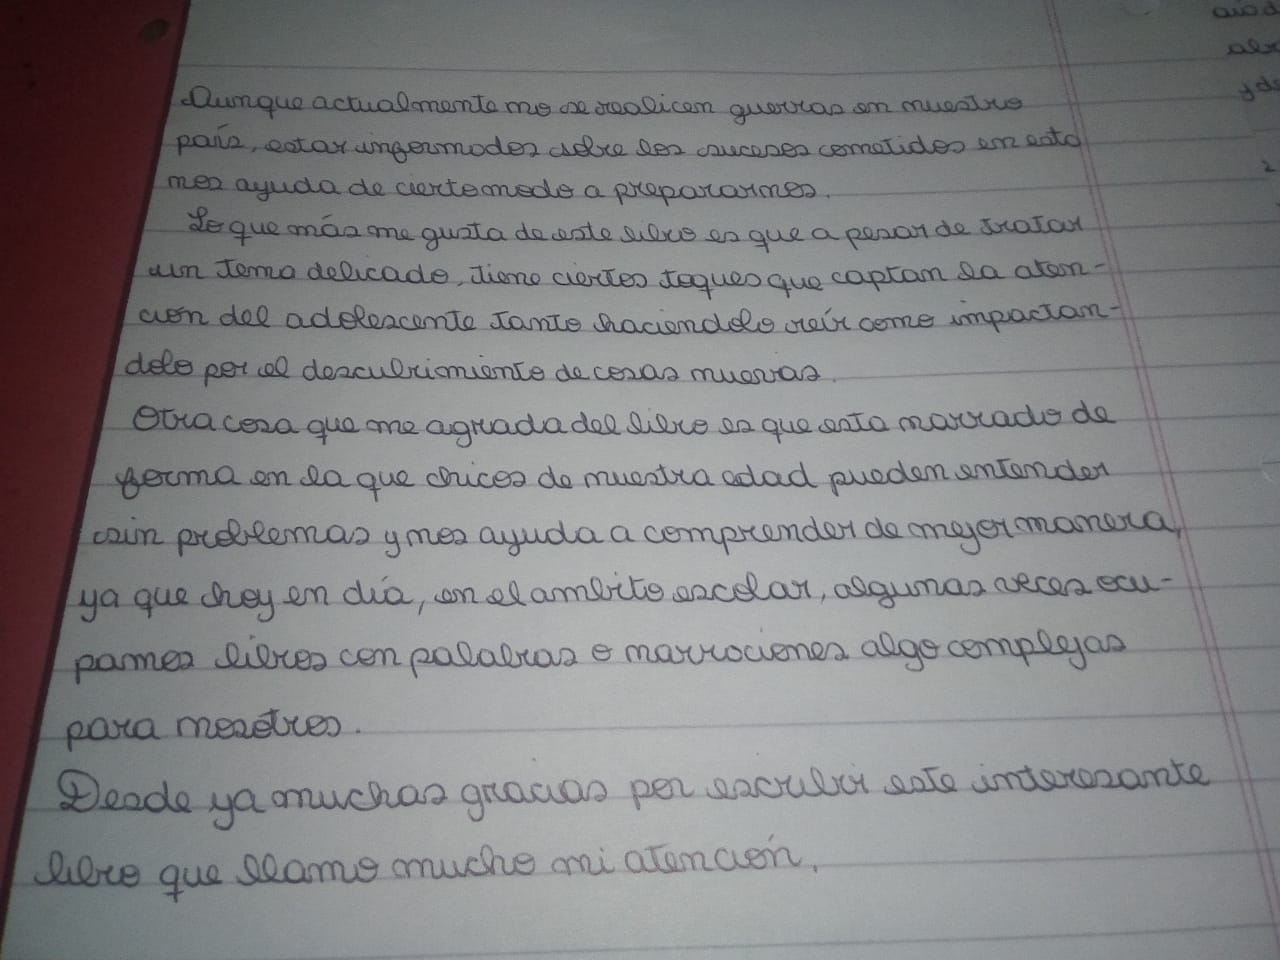 Aunque actualmente no se realicen guerras en nuestro
país, estar informados sobre los sucesos cometidos en esta
nos ayuda de cierto modo a prepararnos.
Lo que más me gusta de este libro es que a pesar de tratar
un tema delicado, tiene ciertos toques que captan la aten-
ción del adolescente tanto haciendolo reír como impactan-
dolo por el descubrimiento de cosas nuevas.
Otra cosa que me agrada del libro es que esta narrado de
forma en la que chicos de nuestra edad pueden entender
sin problemas y nos ayuda a comprender de mejor manera,
ya que hoy en día, en el ambito escolar, algunas veces ocu-
pamos libros con palabras o narraciones algo complejas
para nosótros.
Desde ya muchas gracias por escribir este interesante
libro que llamo mucho mi atención.